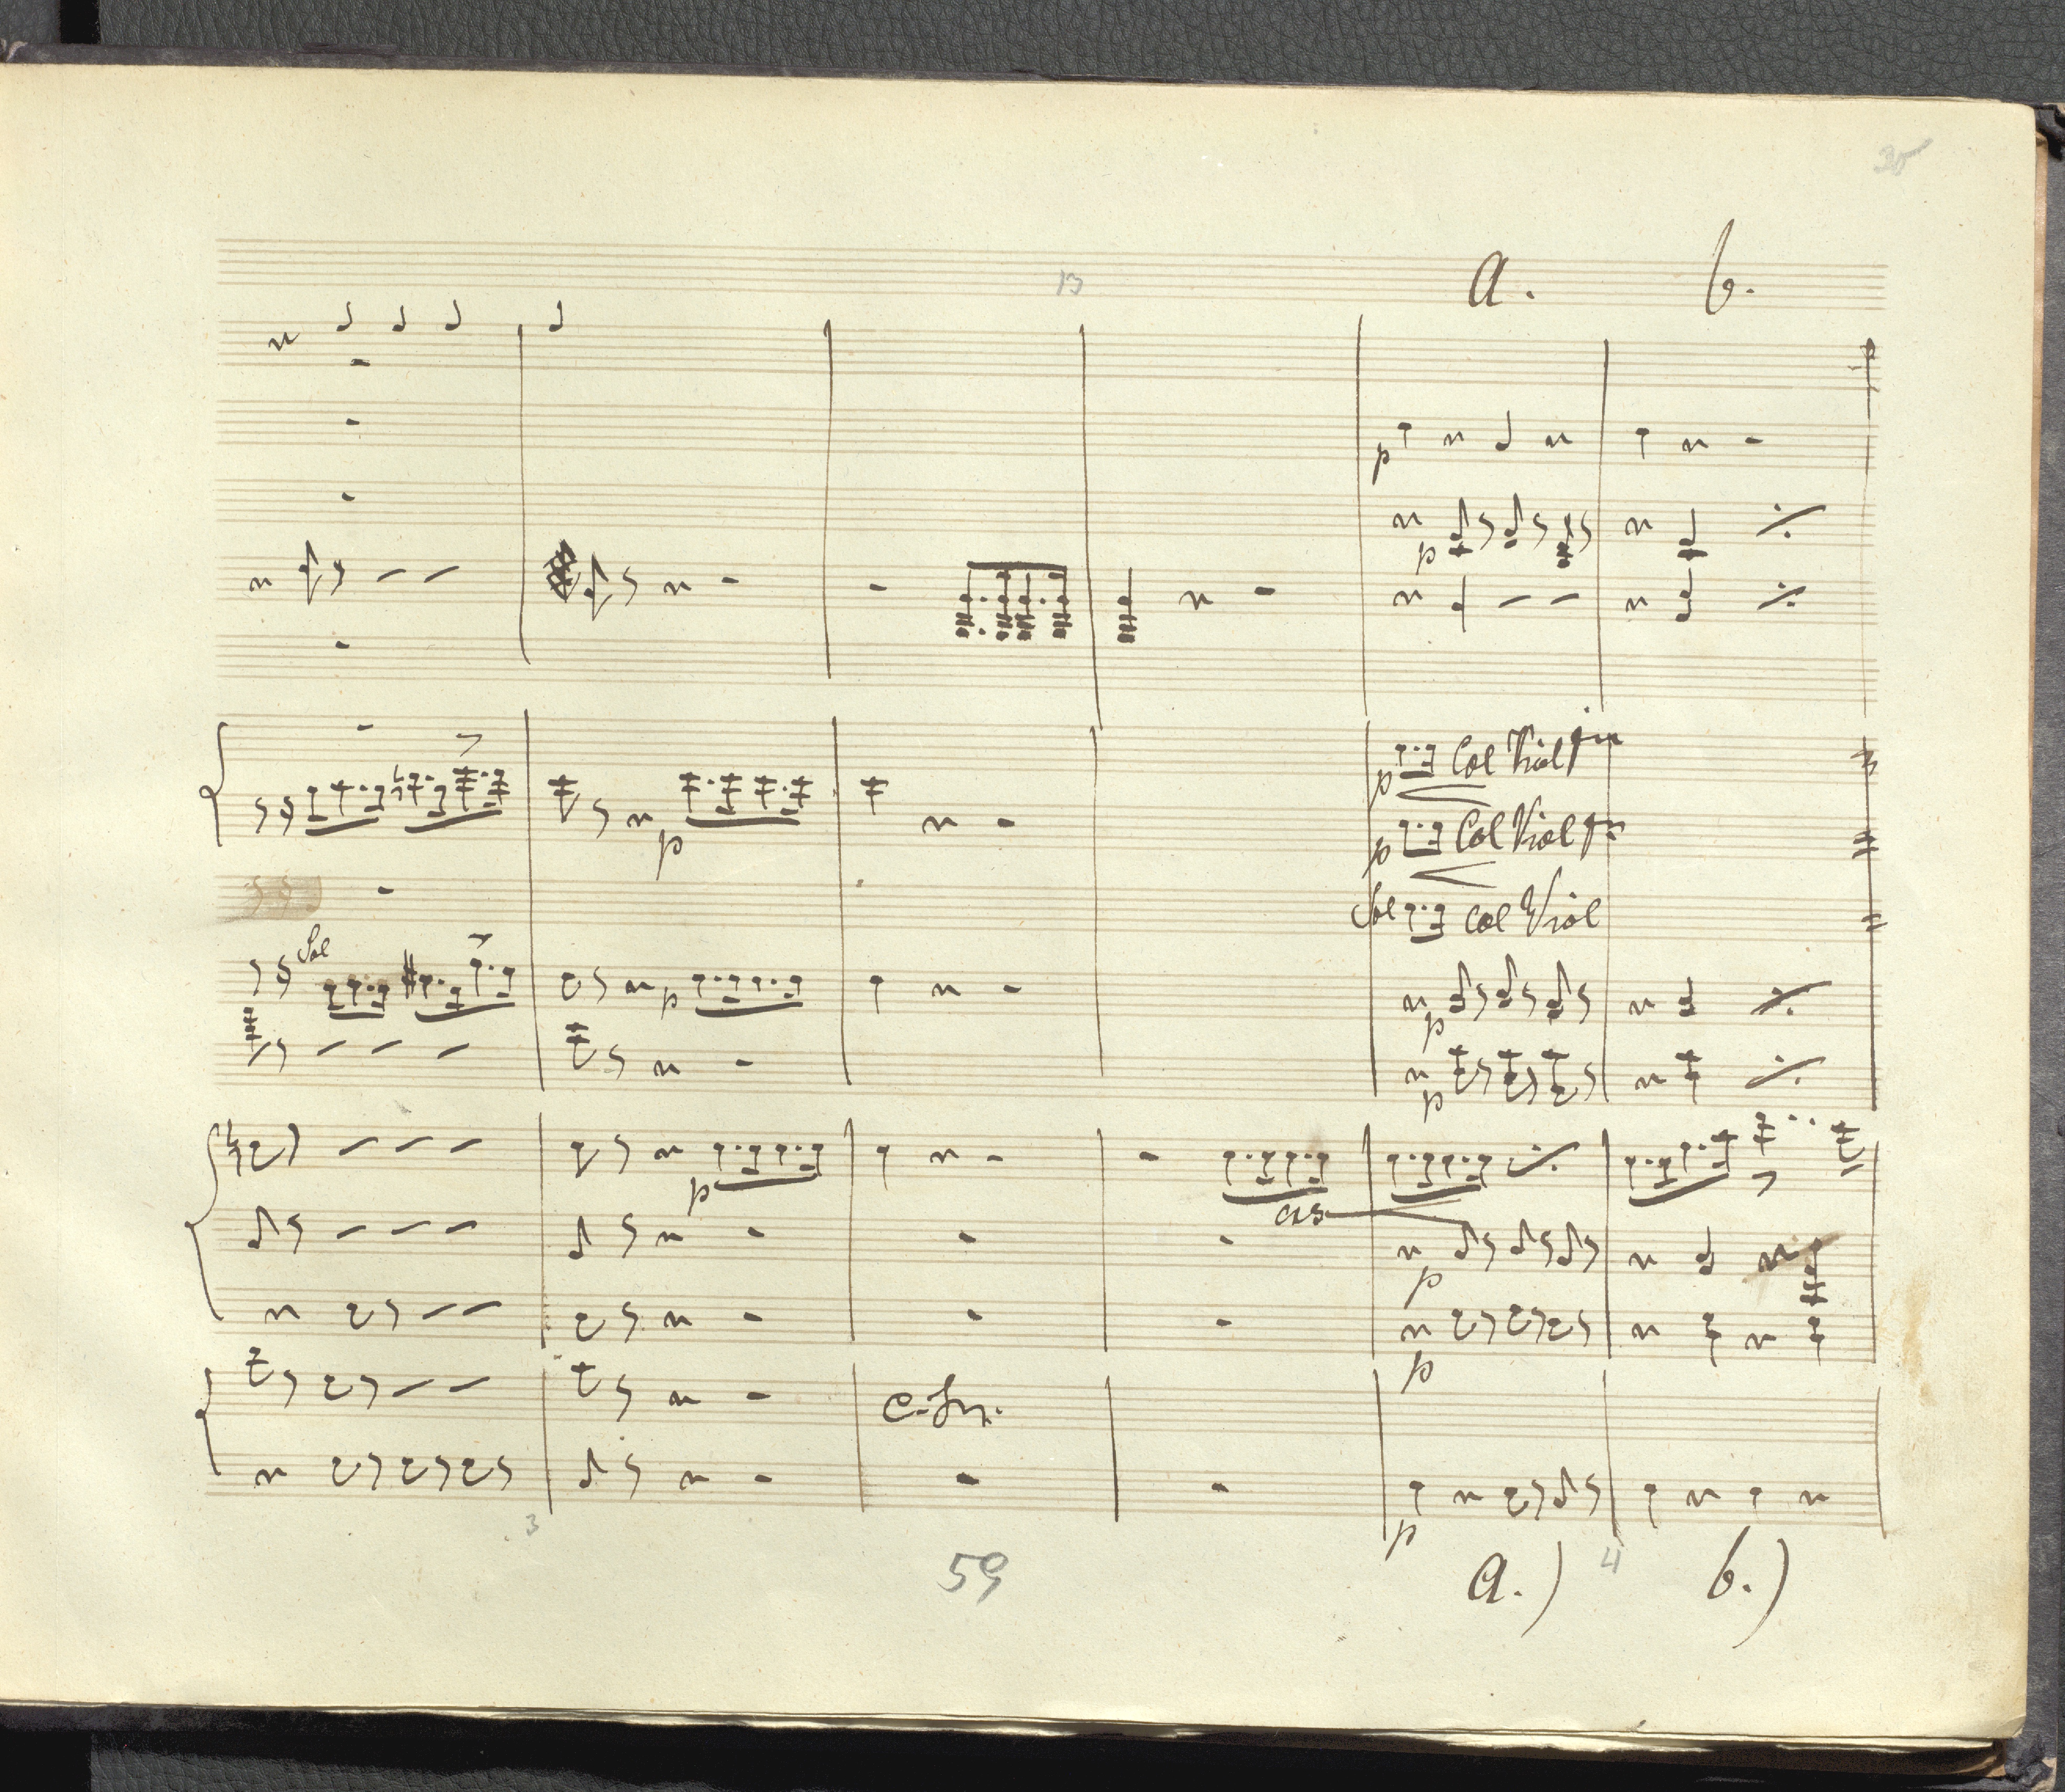 35
13
a. b.
p
p
p Col Viol Imo
p
p Col Viol Imo
Sol Col Viol
Sol
p
p
p
p
cres
p
p
p
3
4
59
a.) b.)